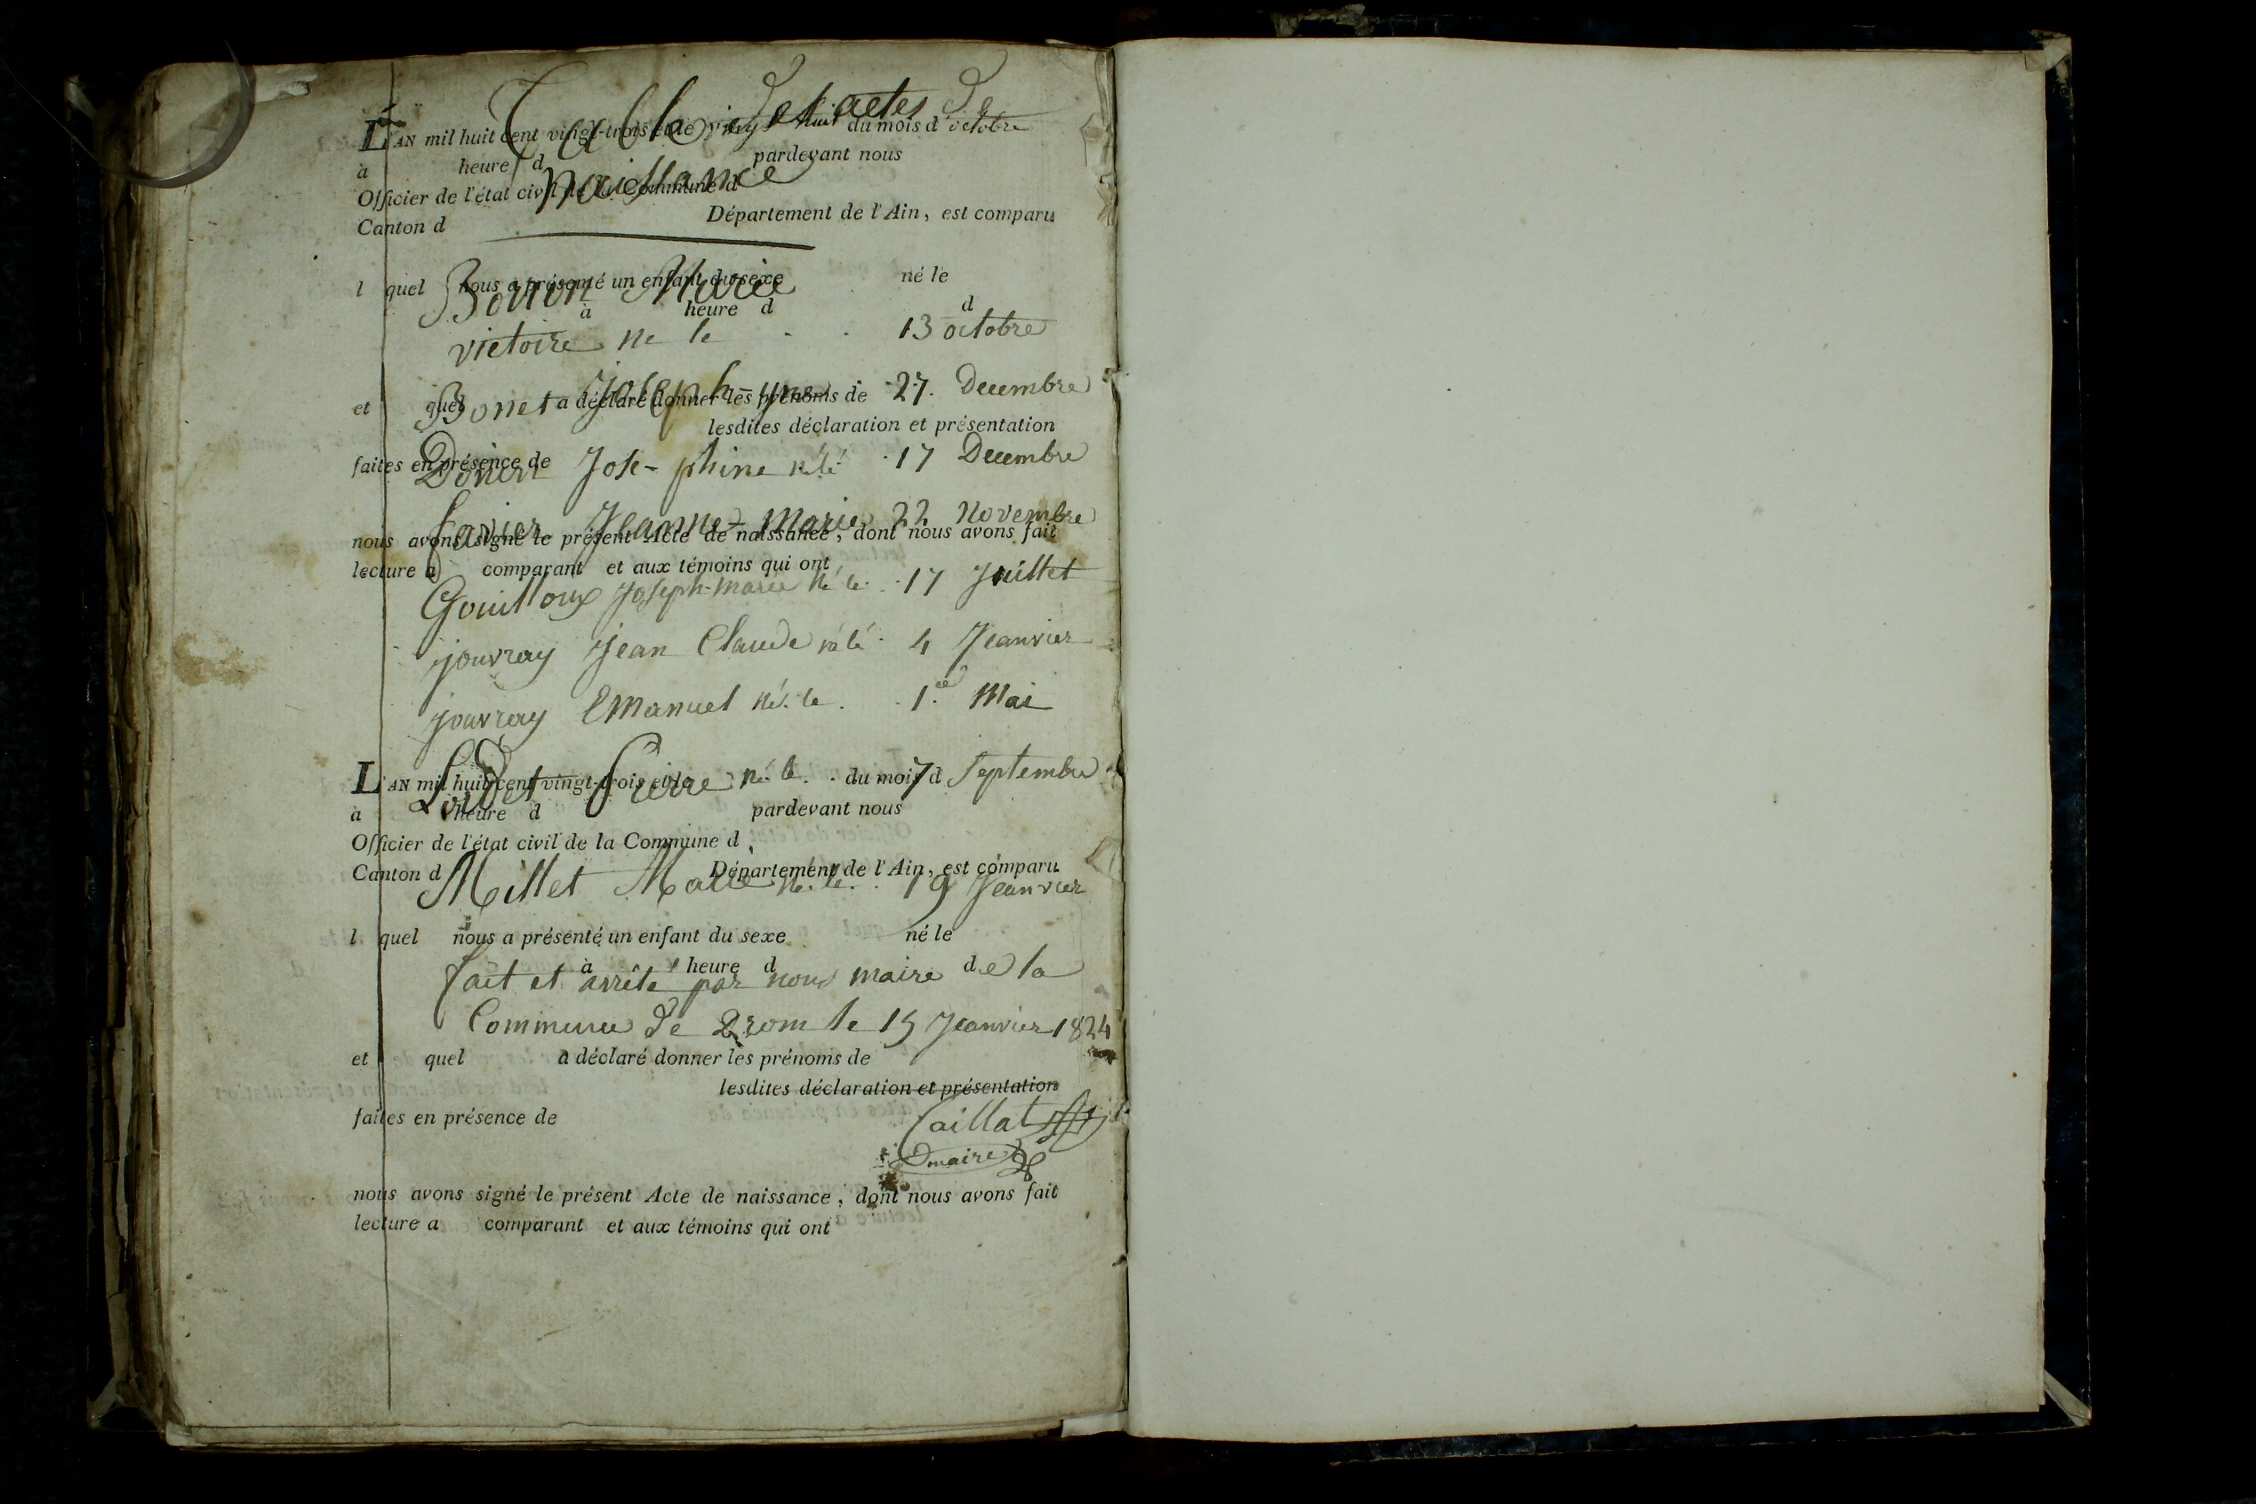 Table des actes de
L'AN mil huit cent vingt-trois et le vingt huit du mois d'octobre
à heure d pardevant nous
naissance
Officier de l'état civil de la Commune d
Canton d Département de l'Ain, est comparu
l quel nous a présenté un enfant du sexe né le
Marie
à heure d d
victoire ne le 13 octobre
Bonet Joseph-yne 27. Decembre
et quel a déclaré donner les prénoms de
lesdites déclaration et présentation
faites en présence de
Jose-phine né le 17 Decembre
favier Jeanne-Marie 22 Novembre
nous avons signé le présent Acte de naissance, dont nous avons fait
lecture a comparant et aux témoins qui ont
Gouilloux Joseph-marie né le 17 Juillet
jouvray Jean Claude né le 4 Jeanvier
jouvray Emanuel né le 1.er Mai
L'AN mil huit cent vingt-trois et le du mois d
Pierre né le 7 Septembre
à heure d pardevant nous
Officier de l'état civil de la Commune d
Canton d Département de l'Ain, est comparu
Millet Marie né le 19 Jeanvier
l quel nous a présenté un enfant du sexe né le
à heure d d
fait et arrêté par nous maire de la
Commune de Drom le 15 Jeanvier 1824
et quel a déclaré donner les prénoms de
lesdites déclaration et présentation
faites en présence de
Caillat
maire
nous avons signé le présent Acte de naissance, dont nous avons fait
lecture a comparant et aux témoins qui ont